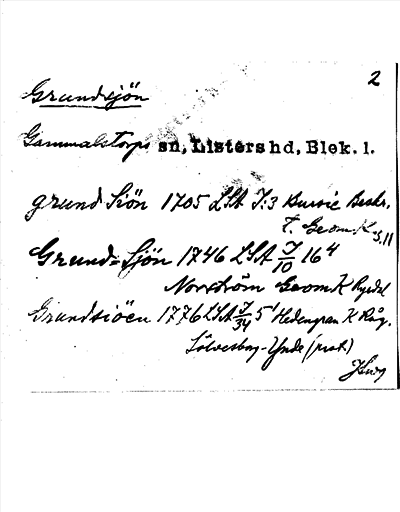 2
Grundsjön
Gammalstorps sn, Listers hd, Blek. l.
grund Siön 1705 LSA J:3 Beskr.
t. GeomK s. 11
Grund-Sjön 1746 LSA J/10 16⁴
Norrström GeomK
Grundsiöen 1776 LSA J/34 5¹ Hedengran K Råg.
Sölvesborg-Ynde (prot.)